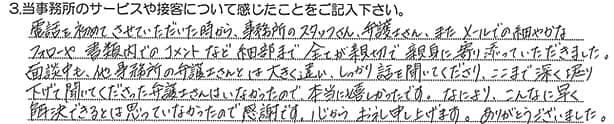 3.当事務所のサービスや接客について感じたことをご記入下さい。
電話を初めてさせていただいた時から、事務所のスタッフさん、弁護士さん、またメールでの細やかな
フォローや書類内でのコメントなど細部まで全てが親切で親身に寄り添っていただきました。
面談中も、他事務所の弁護士さんとは大きく違い、しっかり話を聞いてくださり、ここまで深く掘り
下げて聞いてくださった弁護士さんはいなかったので本当に嬉しかったです。なにより、こんなに早く
解決できるとは思っていなかったので感謝です。心からお礼申し上げます。ありがとうございました。